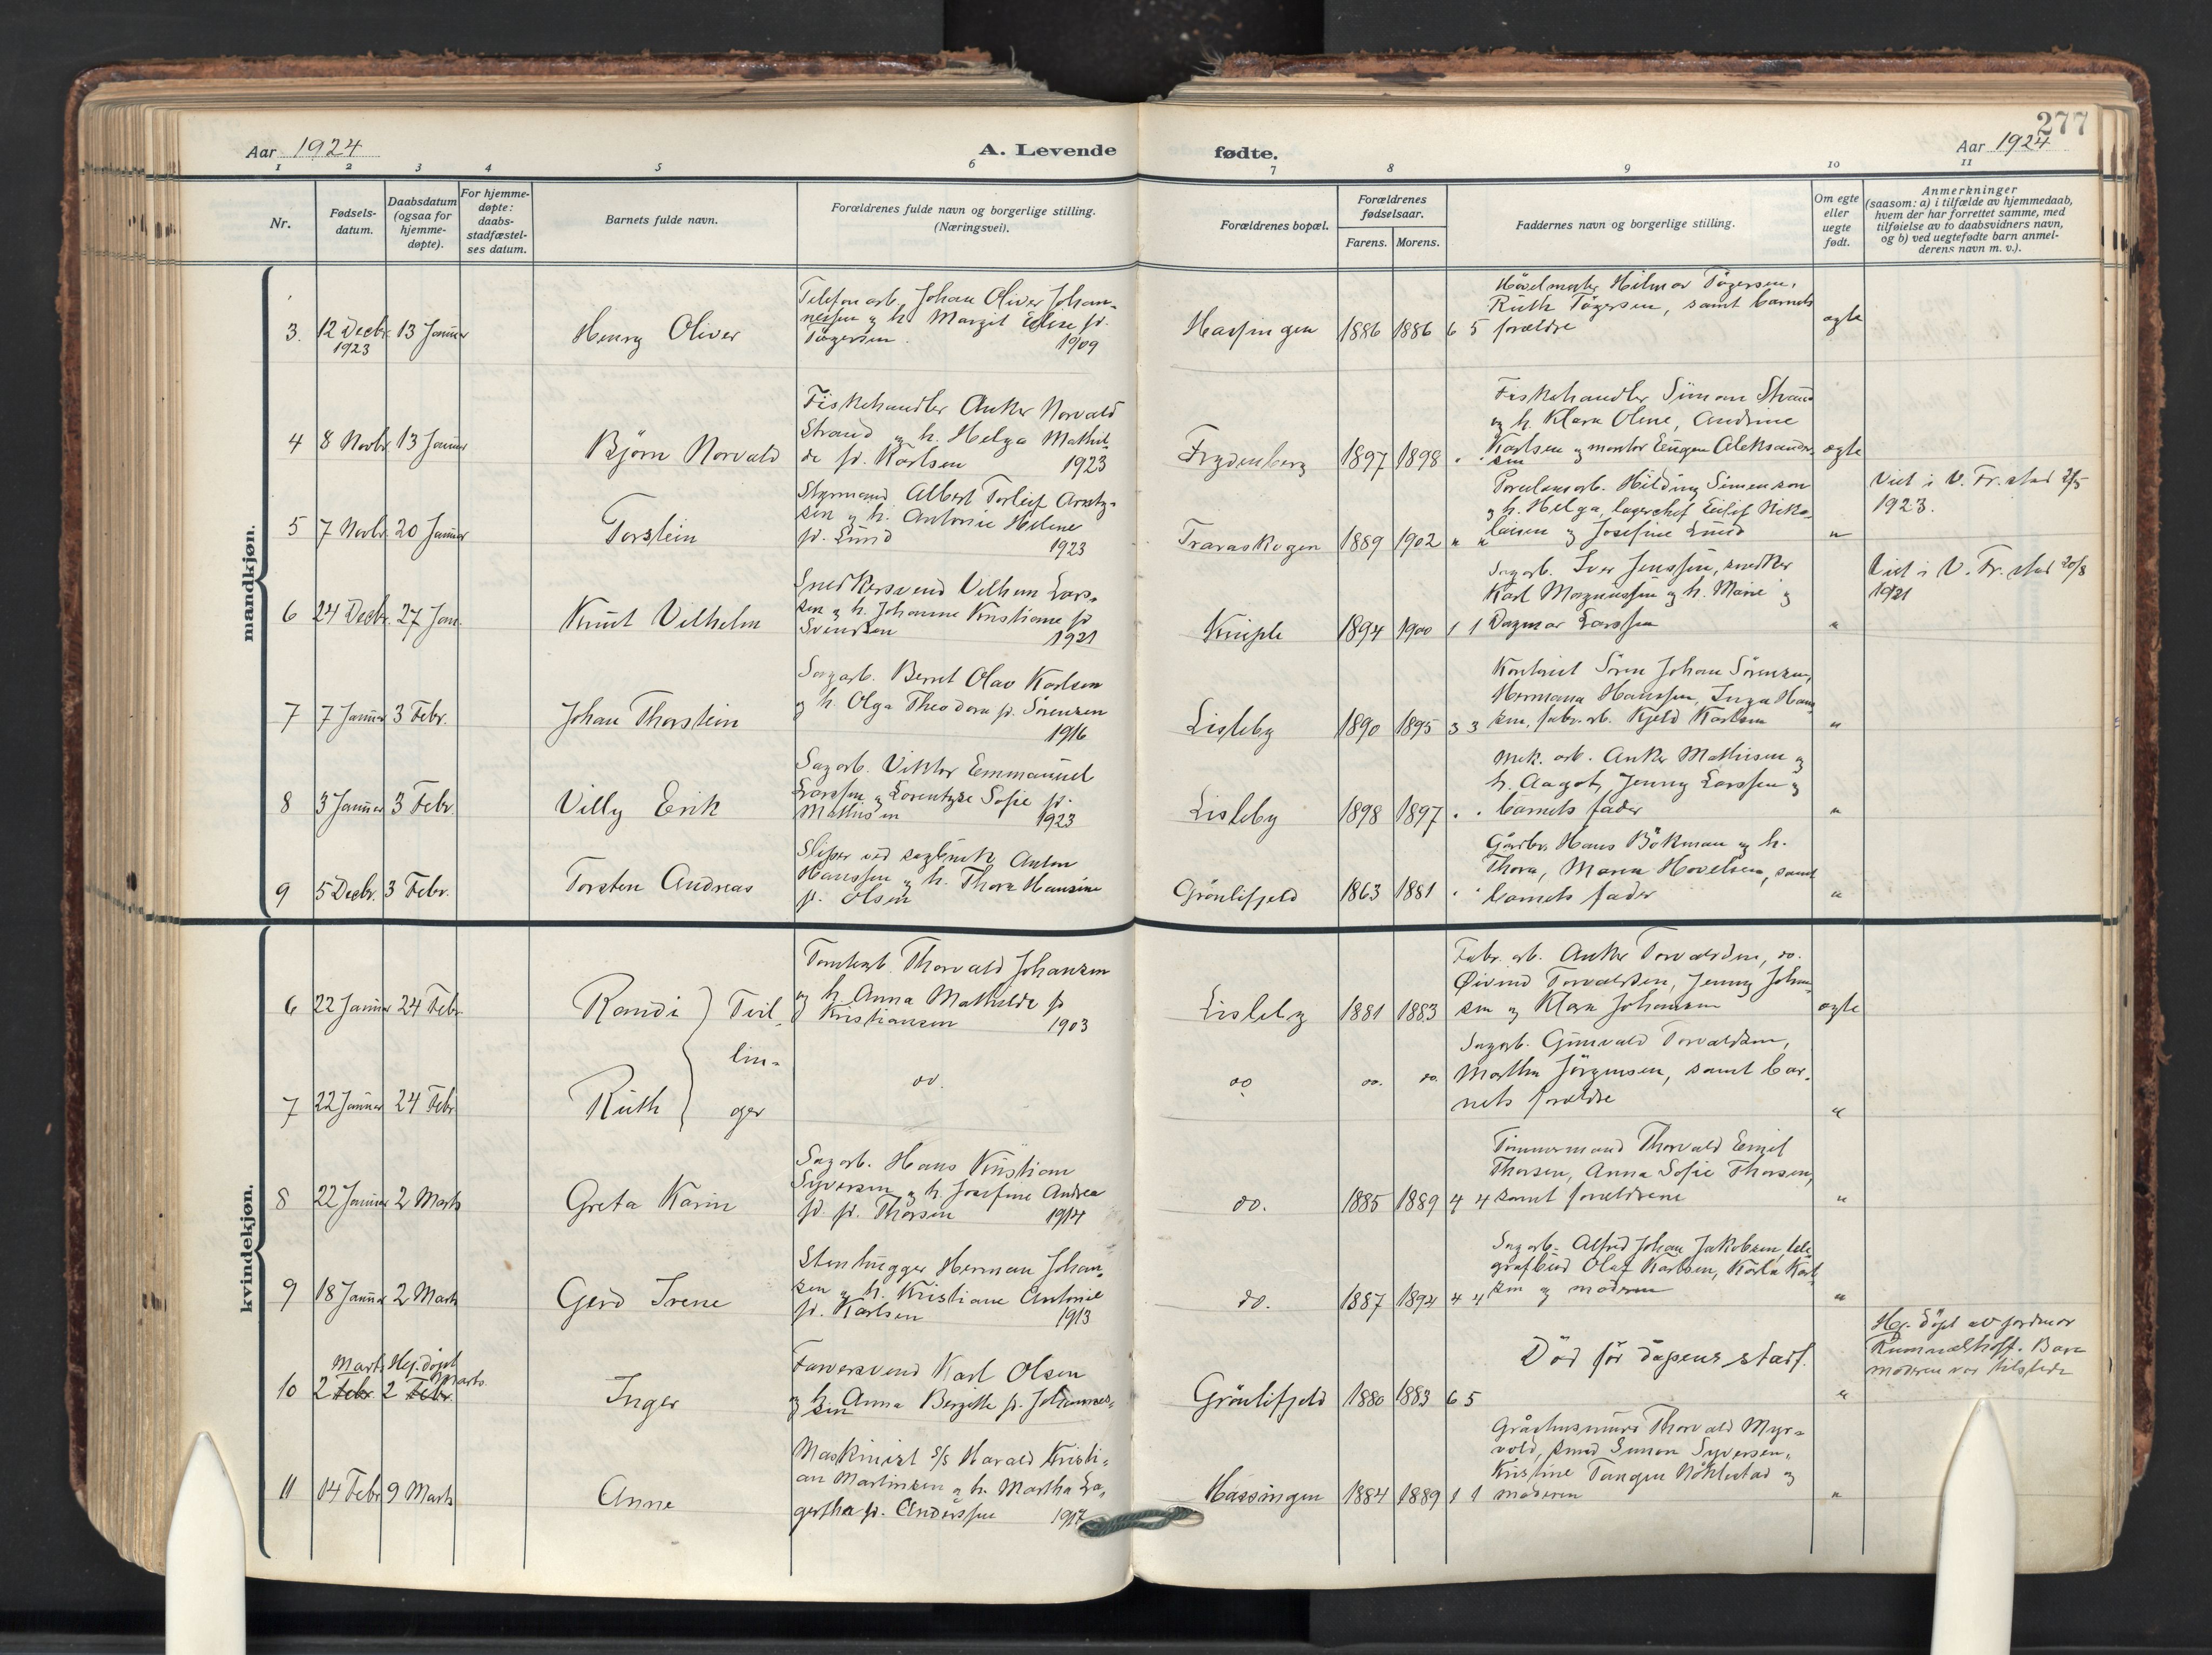 277
Aar 1924
A. Levende
fødte.
Aar 1924
1 2 3 4 5 6 7 8 9 10 11
Nr.
Fødsels-
datum.
Daabsdatum
(ogsaa for
hjemme-
døpte).
For hjemme-
døpte:
daabs-
stadfæstel-
ses datum.
Barnets fulde navn.
Forældrenes fulde navn og borgerlige stilling.
(Næringsvei).
Forældrenes bopæl.
Forældrenes
fødselsaar.
Farens. Morens.
Faddernes navn og borgerlige stilling.
Om egte
eller
uegte
født.
Anmerkninger
(saasom: a) i tilfælde av hjemmedaab,
hvem der har forrettet samme, med
tilføielse av to daabsvidners navn,
og b) ved uegtefødte barn anmel-
derens navn m. v.).
mandkjøn.
3. 12 Decbr. 1923 13 Januar
Henry Oliver
Telefonarb. Johan Oliver Johan-
nessen og h. Margit Elise f.
Tøgersen. 1909
Hassingen 1886 1886 6 5
Høvelmester Hilmar Tøgersen,
Ruth Tøgersen, samt barnets
forældre
egte
4 8 Novbr. 13 Januar
Bjørn Norvald
Fiskehandler Anker Norvald
Strand og h. Helga Mathil-
de f. Karlsen 1923
Frydenberg 1897 1898 . .
Fiskehandler Simon Strand
og h. Klara Oline, Andrine
Karlsen og montør Eugen Aleksander-
sen
egte
5 7 Novbr. 20 Januar
Torstein
Styrmand Albert Torleif Arntz-
sen og h. Antonie Helene
f. Lund 1923
Traraskogen 1889 1902 " "
Porselansarb. Hilding Simenson
og h. Helga, lagerchef Eilif Niko-
laisen og Josefine Lund
"
Viet i V. Fr.stad 2/5
1923.
6 24 Decbr. 27 Jan.
Knut Vilhelm
Snedkersvend Vilhem Lars-
sen og h. Johanne Kristiane f.
Svendsen 1921
Kniple 1894 1900 1 1
Sagarb. Iver Jenssen, snedker
Karl Magnussen og h. Marie og
Dagmar Larssen
"
Viet i V. Fr.stad 20/8
1921
7 7 Januar 3 Febr.
Johan Thorstein
Sagarb. Bernt Olav Karlsen
og h. Olga Theodora f. Sørensen
1916
Lisleby 1890 1895 3 3
Kontorist Søren Johan Sørensen,
Hermana Hanssen, Inga Hans-
sen, fabr.arb. Kjeld Karlsen
"
8 3 Januar 3 Febr.
Villy Erik
Sagarb. Viktor Emmanuel
Larssen og Lorentzke Sofie f.
Mathisen 1923
Lisleby 1898 1897 . .
Mek. arb. Anker Mathisen og
h. Aagot, Jenny Larssen og
barnets fader
"
9 5 Decbr. 3 Febr.
Torsten Andreas
Sliper ved sagbruk Anton
Hanssen og h. Thora Hansine
f. Olsen
Grønlifjeld 1863 1881 . .
Gårbr. Hans Bökman og h.
Thora, Maren Hovelsen, samt
barnets fader
"
kvindekjøn.
6 22 Januar 24 Febr.
Randi
Tvil-
Tomtearb. Thorvald Johansen
og h. Anna Mathilde f.
Kristiansen 1903
Lisleby 1881 1883
Fabr. arb. Anker Torvaldsen, do.
Øivind Torvaldsen, Jenny Johan-
sen og Klara Johansen
egte
lin-
7 22 Januar 24 Febr.
Ruth
ger
do.
do do. do.
Sagarb. Gunvald Torvaldsen,
Martha Jörgensen, samt bar-
nets forældre
"
8 22 Januar 2 Marts
Greta Karin
Sagarb. Hans Kristian
Syversen og h. Josefine Andrea
f. f. Thorsen 1914
do. 1885 1889 4 4
Tømmermand Thorvald Emil
Thorsen, Anna Sofie Thorsen,
samt forældrene
"
9 18 Januar 2 Marts
Gerd Irene
Stenhugger Herman Johan-
sen og h. Kristiane Antonie
f. Karlsen 1913
do. 1887 1894 4 4
Sagarb. Alfred Johan Jakobsen, tele-
grafbud Olaf Karlsen, Karla Karl-
sen og moderen
"
10 Marts 2 Febr. Hj. døpt Marts 2 Febr.
Inger
Farversvend Karl Olsen
og h. Anna Bergitte f. Johannes-
sen
Grønlifjeld 1880 1883 6 5
Död før dåpens stadf.
"
Hj. døpt av jordmor
Rummelhoff. Bare
moderen var tilstede
11 14 Febr. 9 Marts
Anne
Maskinist S/S Harald Kristi-
an Martinsen og h. Martha La-
gertha f. Anderssen 1917
Hassingen 1884 1889 1 1
Gråstensmurer Thorvald Myr-
vold, smed Simon Syversen,
Kristine Tangen Nöklestad og
moderen
"